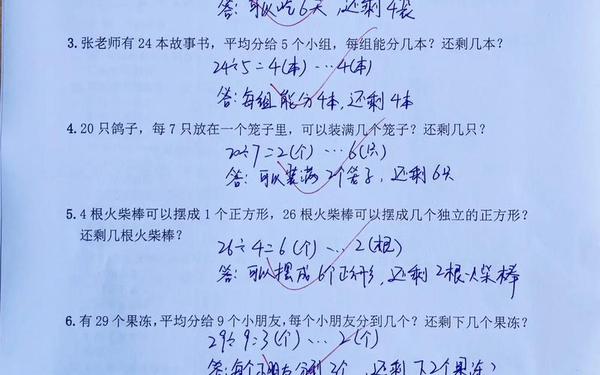 答：可以吃6天，还剩4袋
3. 张老师有 24 本故事书，平均分给 5 个小组，每组能分几本？还剩几本？
24÷5=4(本)…4(本)
答：每组能分4本，还剩4本
4. 20 只鸽子，每 7 只放在一个笼子里，可以装满几个笼子？还剩几只？
20÷7=2(个)…6(只)
答：可以装满2个笼子，还剩6只
5. 4 根火柴棒可以摆成 1 个正方形，26 根火柴棒可以摆成几个独立的正方形？
还剩几根火柴棒？
26÷4=6(个)…2(根)
答：可以摆成6个正方形，还剩2根火柴棒
6. 有 29 个果冻，平均分给 9 个小朋友，每个小朋友分到几个？还剩下几个果冻？
29÷9=3(个)…2(个)
答：每个小朋友分到3个，还剩下2个果冻